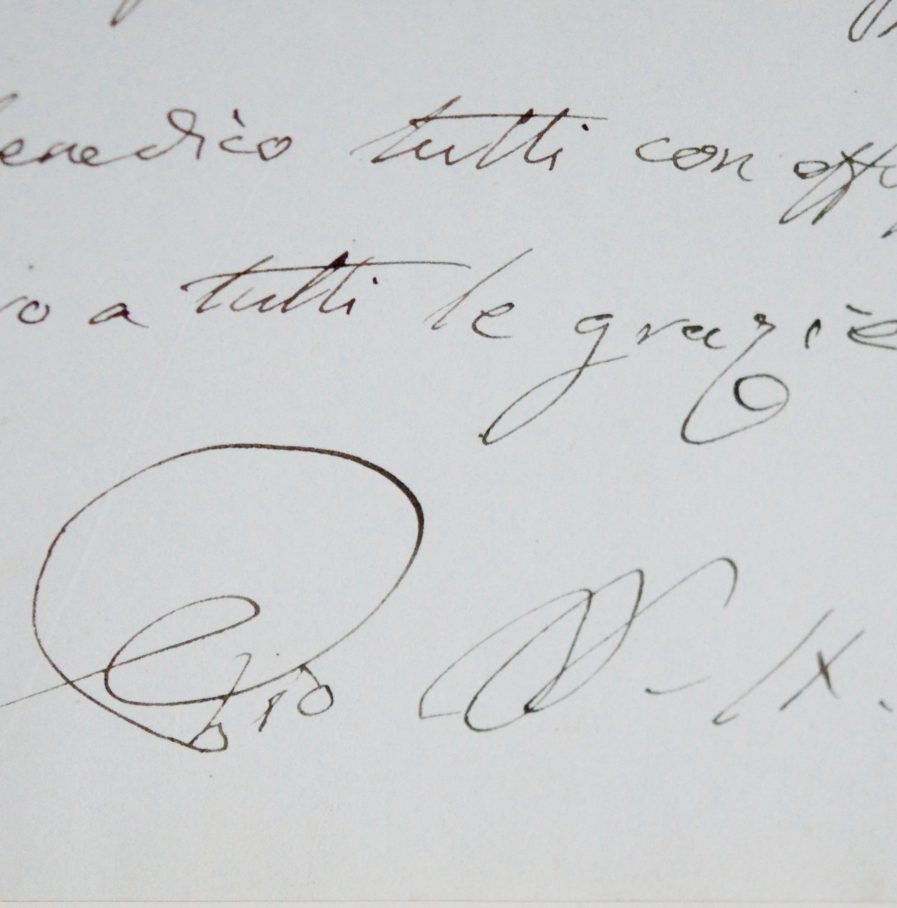 benedico tutti con
a tutti le grazie
Pio PP. IX.